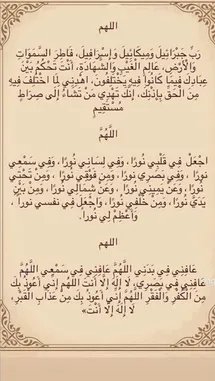 اللهم
رَبَّ جَبْرَائِيلَ وَمِيكَائِيلَ وَإِسْرَافِيلَ، فَاطِرَ السَّمَوَاتِ
وَالْأَرْضِ، عَالِمَ الْغَيْبِ وَالشَّهَادَةِ، أَنْتَ تَحْكُمُ بَيْنَ
عِبَادِكَ فِيمَا كَانُوا فِيهِ يَخْتَلِفُونَ، اهْدِنِي لِمَا اخْتُلِفَ فِيهِ
مِنَ الْحَقِّ بِإِذْنِكَ، إِنَّكَ تَهْدِي مَنْ تَشَاءُ إِلَى صِرَاطٍ
مُسْتَقِيمٍ
اللَّهُمَّ
اجْعَلْ فِي قَلْبِي نُورًا، وَفِي لِسَانِي نُورًا، وَفِي سَمْعِي
نُورًا ، وَفِي بَصَرِي نُورًا، وَمِنْ فَوْقِي نُورًا ، وَمِنْ تَحْتِي
نُورًا، وَعَنْ يَمِينِي نُورًا، وَعَنْ شِمَالِي نُورًا، وَمِنْ بَيْنِ
يَدَيَّ نُورًا، وَمِنْ خَلْفِي نُورًا، وَاجْعَلْ فِي نَفْسِي نُورًا ،
وَأَعْظِمْ لِي نُورًا.
اللهم
عَافِنِي فِي بَدَنِي اللَّهُمَّ عَافِنِي فِي سَمْعِي اللَّهُمَّ
عَافِنِي فِي بَصَرِي، لَا إِلَهَ إِلَّا أَنْتَ اللهُم إِنِّي أَعُوذُ بِكَ
مِنَ الْكُفْرِ وَالْفَقْرِ اللَّهُمَّ إِنِّي أَعُوذُ بِكَ مِنْ عَذَابِ الْقَبْرِ،
لَا إِلَهَ إِلَّا أَنْتَ»